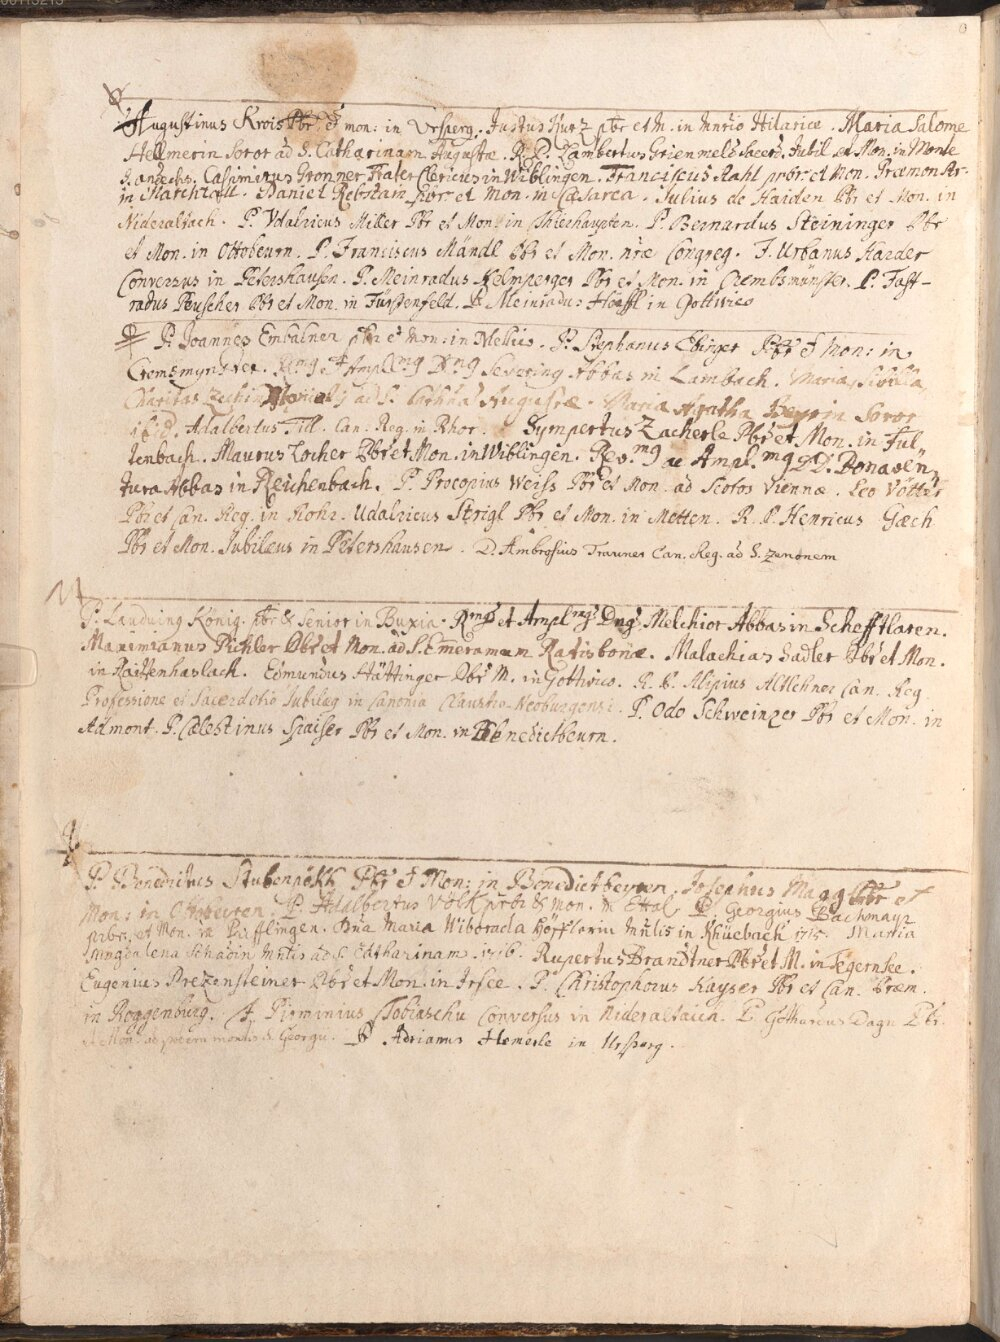 Augustinus Krois Pbr et mon: in Ursperg. Justus Kurz pbr et M. in Mntrio Hilariæ. Maria Salome
Hellmerin Soror ad S. Catharinam Augustæ. R. P. Lambertus Grienmels Sacerd. Jubil et Mon. in Monte
S. Andechs. Casimirus Gronner Frater Clericus in Wiblingen. Franciscus Stahl prbr et Mon. Præmon str.
in Marchtall. Daniel Rebstain Pbr. et Mon. in Cæsarea. Julius de Haiden Pbr et Mon. in
Nideraltach. P. Udalricus Miller Pbr et Mon. in Thierhaupten. P. Bernardus Steininger Pbr
et Mon. in Ottobeurn. P. Franciscus Mändl Pbr et Mon. nræ Congreg. F. Urbanus Harder
Conversus in Petershausen. P. Meinradus Kelmperger Pbr et Mon. in Crembsmünster. P. Fast-
radus Peuscher Pbr et Mon. in Fürstenfeld. P. Meinradus Höffl in Gottwico
P. Joannes Embalner pbr et Mon: in Mellico. P. Stephanus Ebinger Pbr et Mon: in
Cremsmynster. Rmg et Amplmg Dng Severing Abbas in Lambach. Maria Sibilla
Charitas ad S. Cathna Augustæ. Maria Agatha Beyrin Soror
ibid. Adalbertus Till. Can. Reg. in Rhor. Sympertus Zacherle Pbr et Mon. in Ful-
tenbach. Maurus Locher Pbr et Mon. in Wiblingen. Rev.mg ac Ampl.mg DD. Bonaven-
tura Abbas in Reichenbach. P. Procopius Weiss Pbr et Mon. ad Scotos Viennæ. Leo Vötter
Pbr et Can. Reg. in Rohr. Udalricus Strigl Pbr et Mon. in Metten. R. P. Henricus Gæch
Pbr et Mon. Jubilæus in Petershausen. D. Ambrosius Trauner Can. Reg. ad S. Zenonem
P. Landuing König. Pbr & Senior in Buxia. Rmg et Amplmg Dng Melchior Abbas in Schefftlaren.
Maximianus Pichler Pbr et Mon. ad S. Emeramum Ratisbonæ. Malachias Sadler Pbr et Mon.
in Raittenhaslach. Edmundus Hüttinger Pbr M. in Gottwico. R. P. Alipius Altlehner Can. Reg.
Professione et Sacerdotio Jubilæg in Canonia Claustro-Neoburgensi. P. Odo Schweinzer Pbr et Mon. in
Admont. P. Cælestinus Spaiser Pbr et Mon. in Benedictbeurn.
P. Benedictus Stubenpökh Pbr et Mon: in Benedictbeyren. Josephus Magg Pbr et
Mon: in Ottobeyren. P. Adalbertus Volk prbr & mon. in Ettal P. Georgius Bachmayr
prbr. et Mon. in Priflingen. Dna Maria Wiborada Höfflerin Mntis in Khüebach 1715. Maria
Magdalena Schadin Mntis ad S. Catharinam. 1716. Rupertus Brandtner Pbr et M. in Tegernsee.
Eugenius Prezensteiner Pbr et Mon. in Irsee. P. Christophorus Kayser Pbr et Can. Præm.
in Roggenburg. F. Pirminius Tobiaschu Conversus in Nideraltaich. P. Gothardus Dagn Pbr.
et Mon. ad montis S. Georgii. P. Adrianus Hemerle in Ursperg.